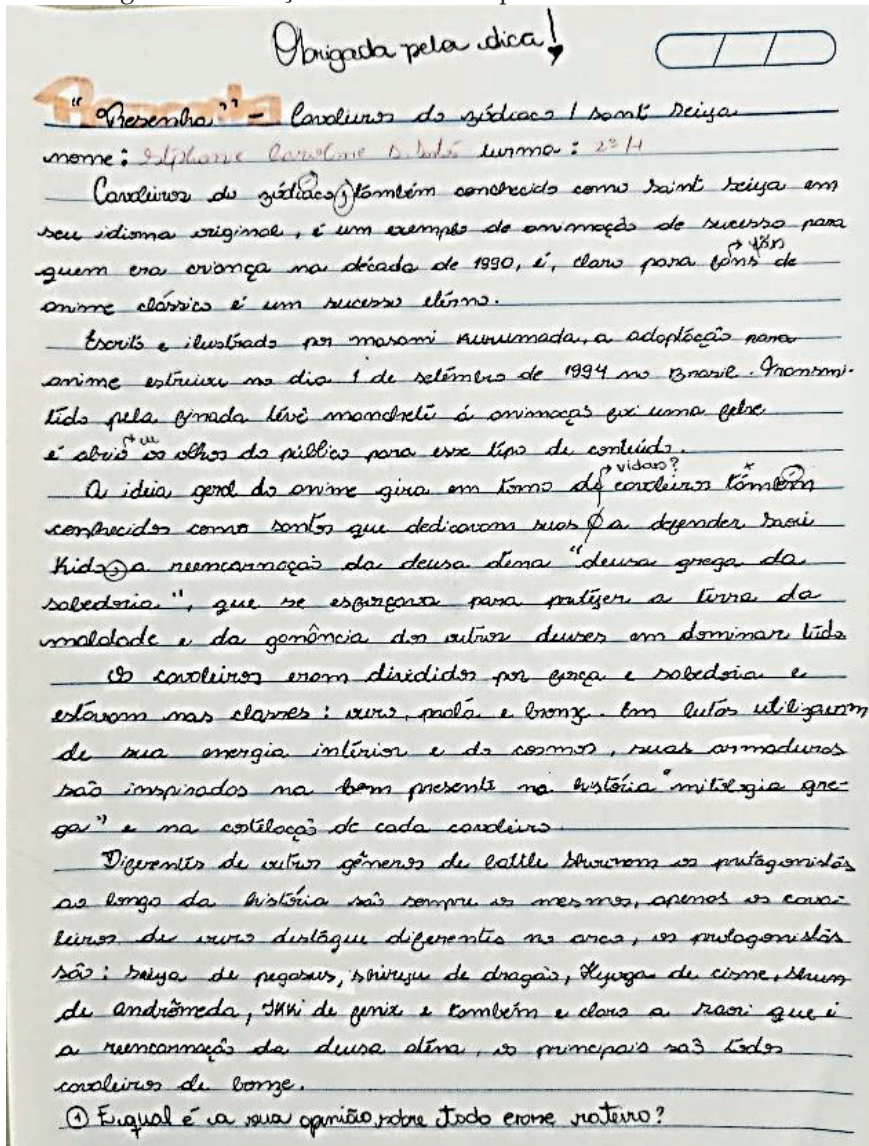 Obrigada pela dica!
/ /
"Resenha" - Cavaleiros do zódiaco / saint seiya
nome: Stphane Caroline turma: 2º
Cavaleiros do zódiaco, também conhecido como saint seiya em
seu idioma original, é um exemplo de animação de sucesso para
quem era criança na década de 1990, é, claro para fãns de
anime clássico é um sucesso etérno.
Escrito e ilustrado por masami kurumada, a adaptação para
anime estreiou no dia 1 de setémbro de 1994 no Brasil. Transmi-
tido pela finada tevê manchete á animação foi uma febre
é abrio os olhos do público para esse tipo de conteúdo.
vidas?
A ideia geral do anime gira em torno de cavaleiros também
conhecidos como santos que dedicavam suas a defender saori
Kido, a reencarnação da deusa atena "deusa grega da
sabedoria", que se esforçava para protejer a terra da
maldade e da ganância dos outros deuses em dominar tudo
Os cavaleiros eram divididos por força e sabedoria e
estavam nas classes: ouro, prata e bronze. Em lutas utilizavam
de sua energia intérior e do cosmos, suas armaduras
são inspirados na bem presente na história "mitologia gre-
ga" e na costelação de cada cavaleiro.
Diferentes de outros gêneros de battle shounem os protagonistas
ao longo da história são sempre os mesmos, apenas os cava-
leiros de ouro destaque diferentes no arco, os protagonistas
são: seiya de pegasus, shiryu de dragão, Hyoga de cisne, shun
de andrômeda, Ikki de fenix e também e claro a saori que é
a reencarnação da deusa aténa, os principais são todos
cavaleiros de bonze.
① E qual é a sua opinião sobre todo roteiro?